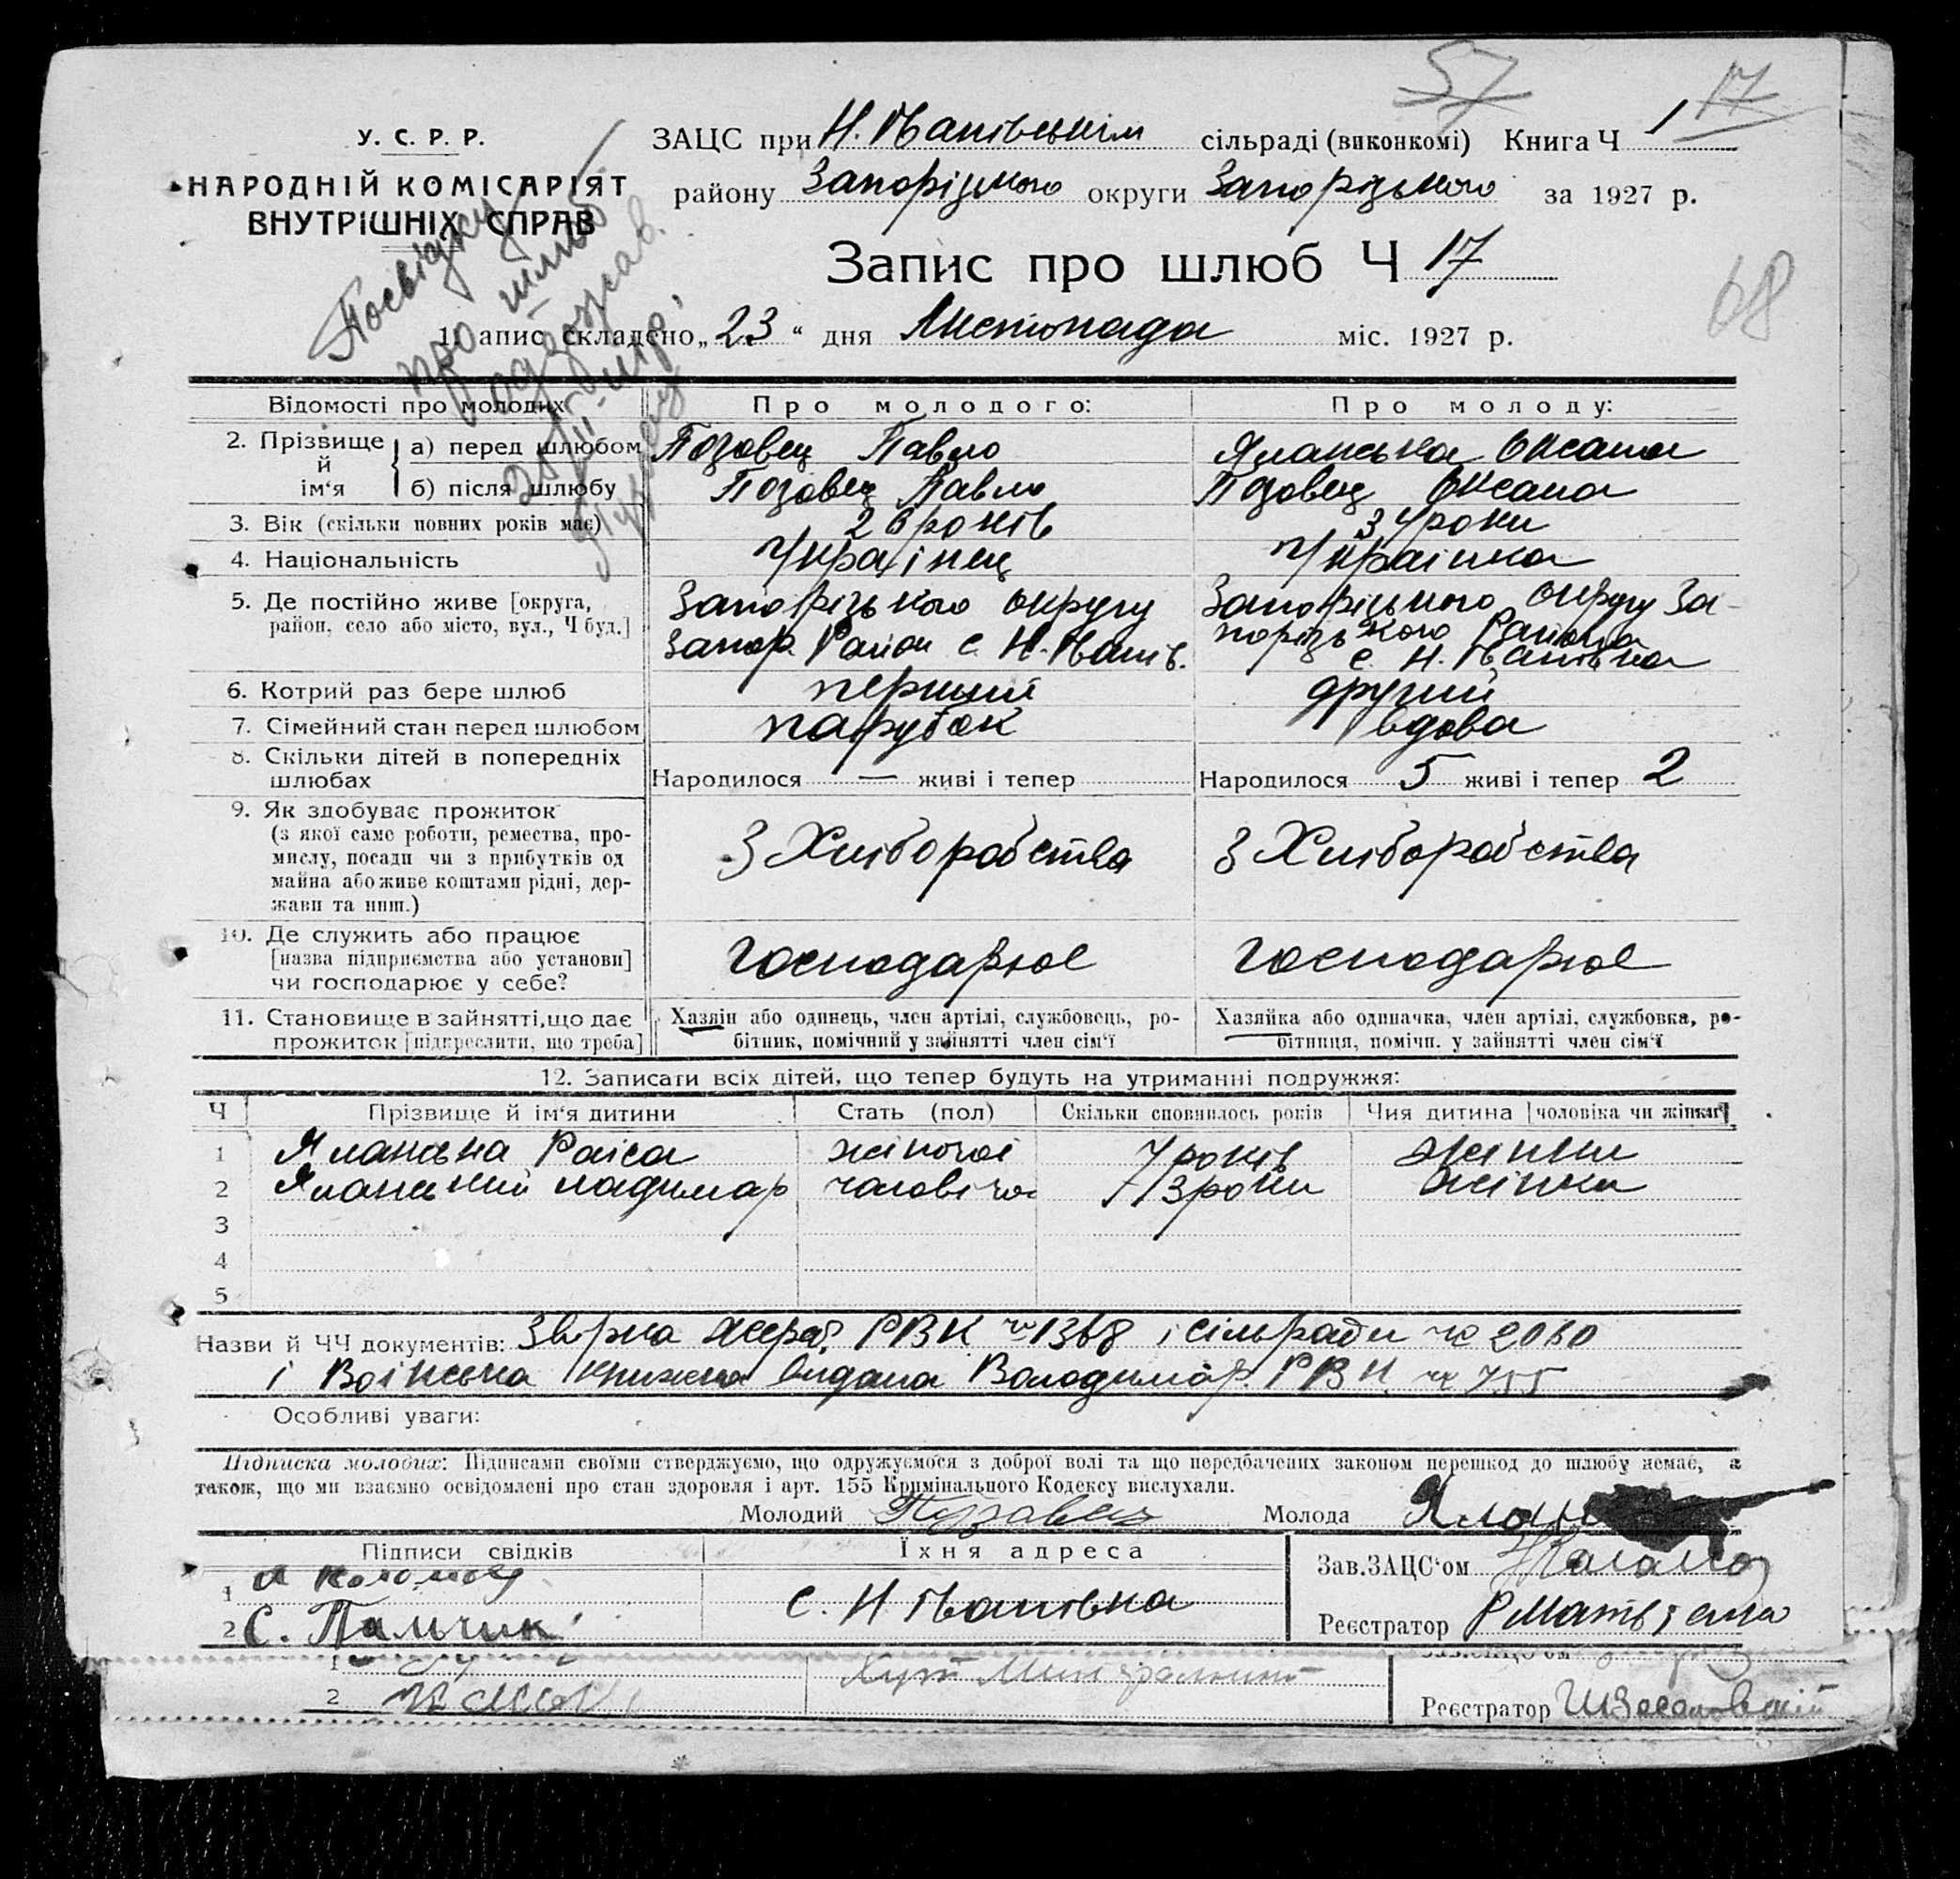 57
17
У. С. Р. Р.
НАРОДНІЙ КОМІСАРІЯТ
ВНУТРІШНІХ СПРАВ
ЗАЦС при Н. Іванівській сільраді (виконкомі) Книга Ч 1
району Запорізького округи Запорізького за 1927 р.
Запис про шлюб Ч 17
68
1. Запис складено „23“ дня Листопада міс. 1927 р.
Посвідку
про шлюб
одержав.
Відомості про молодих
Про молодого:
Про молоду:
2. Прізвище й ім‘я
а) перед шлюбом
Позовец Павло
Яланська Оксана
б) після шлюбу
Позовец Павло
Позовец Оксана
3. Вік (скільки повних років має)
26 років
34 роки
4. Національність
Українец
Українка
5. Де постійно живе [округа,
район, село або місто, вул., Ч буд.]
Запорізького округу
Запор. Район с. Н. Іванів.
Запорізького округу За-
порізького Района
с. Н. Іванівка
6. Котрий раз бере шлюб
перший
другий
7. Сімейний стан перед шлюбом
парубок
вдова
8. Скільки дітей в попередніх
шлюбах
Народилося — живі і тепер
Народилося 5 живі і тепер 2
9. Як здобуває прожиток
(з якої саме роботи, ремества, про-
мислу, посади чи з прибутків од
майна або живе коштами рідні, дер-
жави та инш.)
З Хліборобства
З Хліборобства
10. Де служить або працює
[назва підприємства або установи]
чи господарює у себе?
Господарює
Господарює
11. Становище в зайнятті, що дає
прожиток [підкреслити, що треба]
Хазяїн або одинець, член артілі, службовець, ро-
бітник, помічний у зайнятті член сім‘ї
Хазяйка або одиначка, член артілі, службовка, ро-
бітниця, помічн. у зайнятті член сім‘ї
12. Записати всіх дітей, що тепер будуть на утриманні подружжя:
Ч Прізвище й ім‘я дитини Стать (пол) Скільки сповнилось років Чия дитина [чоловіка чи жінки]
1 Яланська Раїса жіночої 7 років жінки
2 Яланський ладимар чоловічо 3 роки жінки
3
4
5
Назви й ЧЧ документів: Звірка РВК ч 1368 і сільради ч 2080
і Воінська книжка видана Володимар. РВК ч 755
Особливі уваги:
Підписка молодих: Підписами своїми стверджуємо, що одружуємося з доброї волі та що передбачених законом перешкод до шлюбу немає, а
також, що ми взаємно освідомлені про стан здоровля і арт. 155 Кримінального Кодексу вислухали.
Молодий Позавец Молода Ялан
Підписи свідків
Їхня адреса
Зав. ЗАЦС‘ом
1
2 С. Памчик
с. Н Іванівка
Реєстратор
1
2
Хут
Зав. ЗАЦС‘ом
Реєстратор